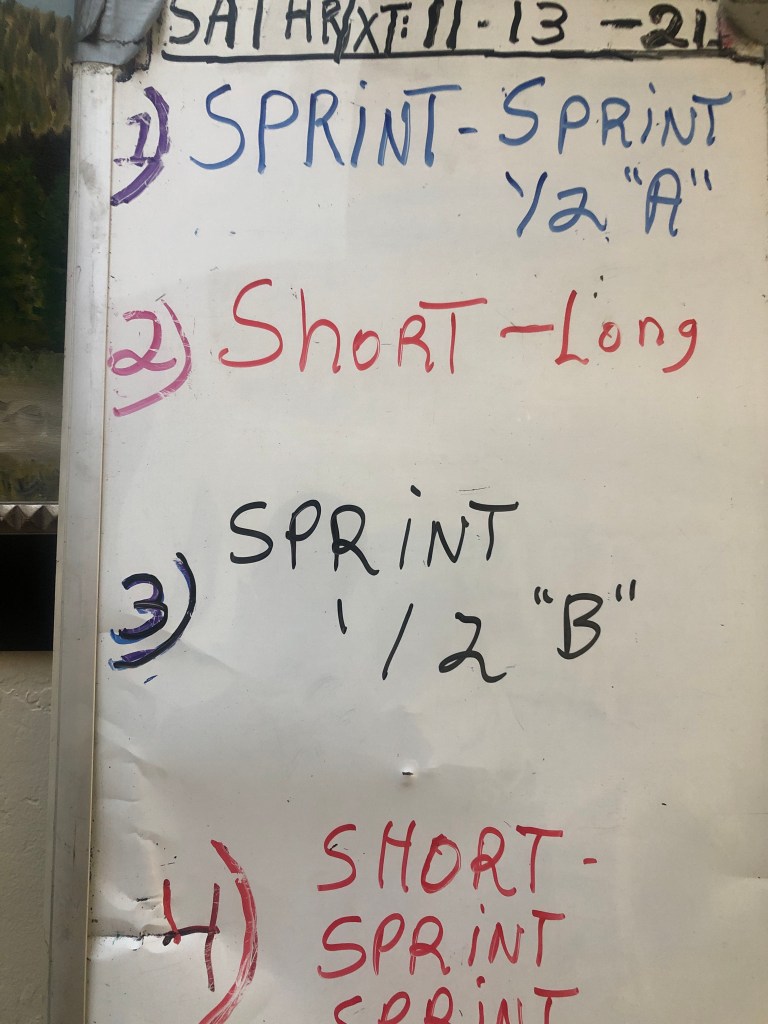 SAT HR/XT: 11-13-21
1) SPRiNT-SPRiNT
1/2 "A"
2) ShORT-Long
SPRiNT
3) 1/2 "B"
4) SHORT-
SPRiNT
SPRiNT